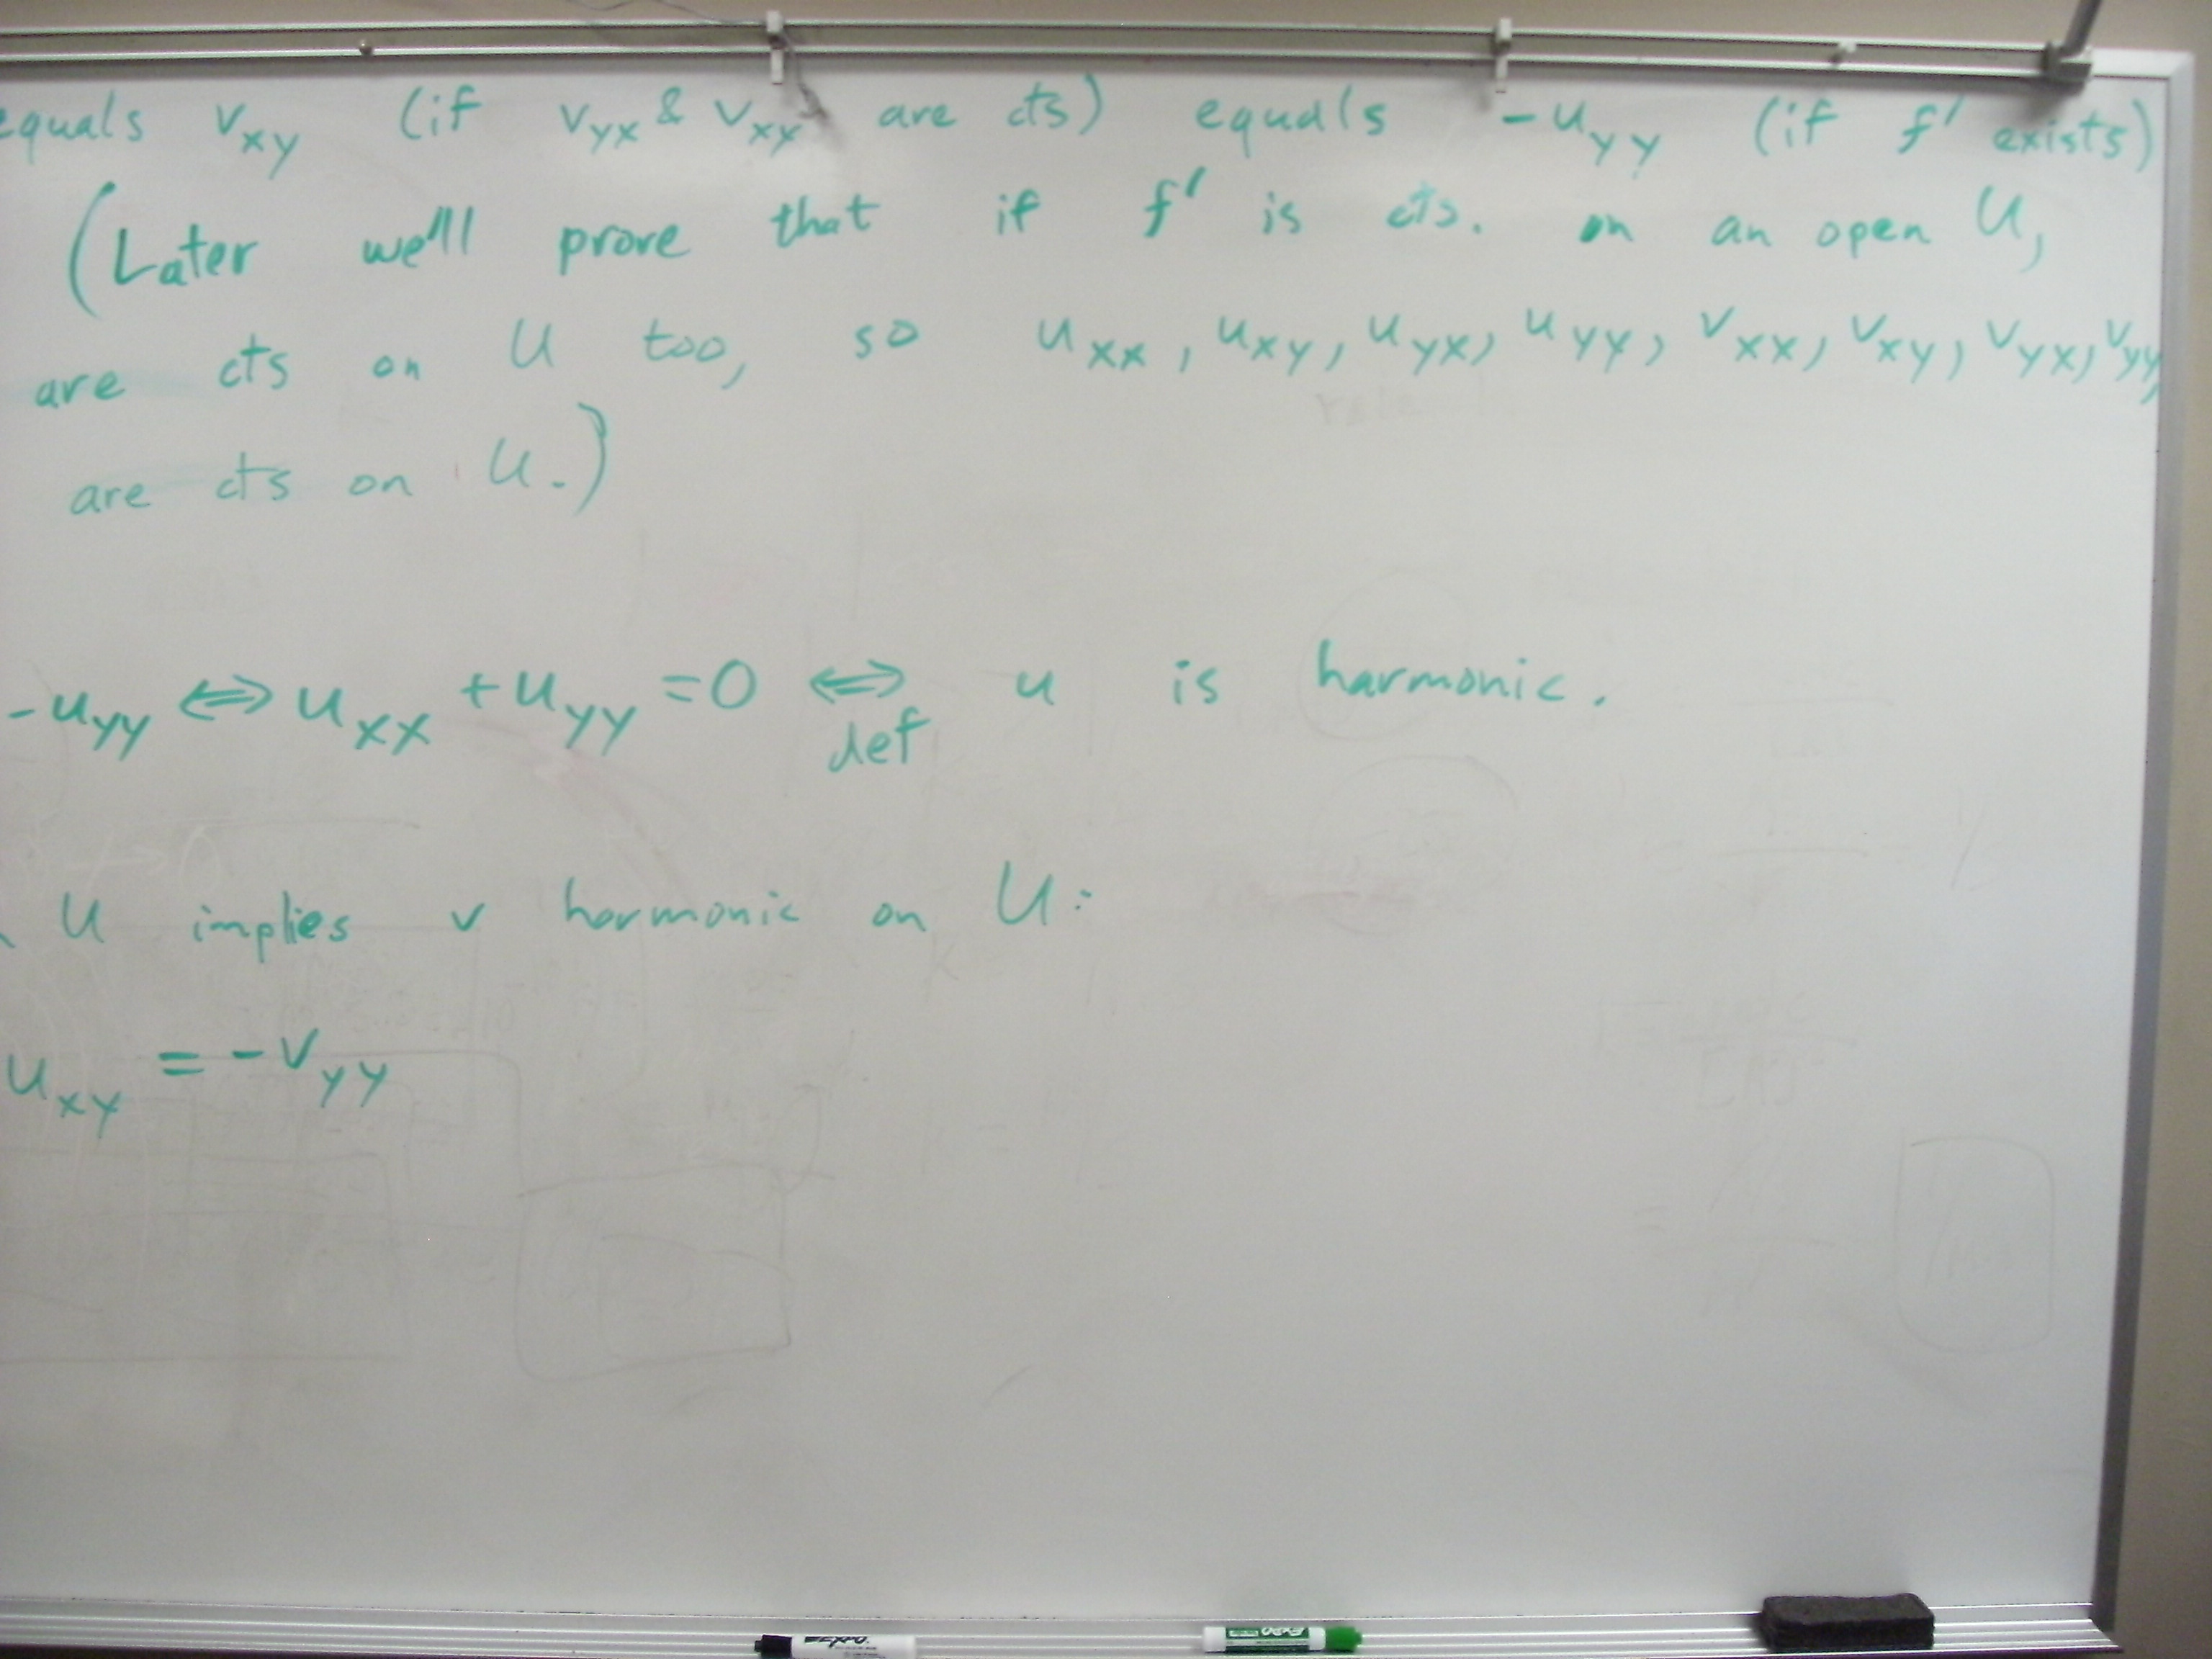 equals v_xy (if v_yx & v_xy are cts) equals -u_yy (if f' exists)
(Later we'll prove that if f' is cts. on an open U,
are cts on U too, so u_xx, u_xy, u_yx, u_yy, v_xx, v_xy, v_yx, v_yy,
are cts on U.)
-u_yy ⇔ u_xx + u_yy = 0 ⇔ u is harmonic.
def
U implies v harmonic on U:
u_xy = -v_yy
EXPO
EXPO